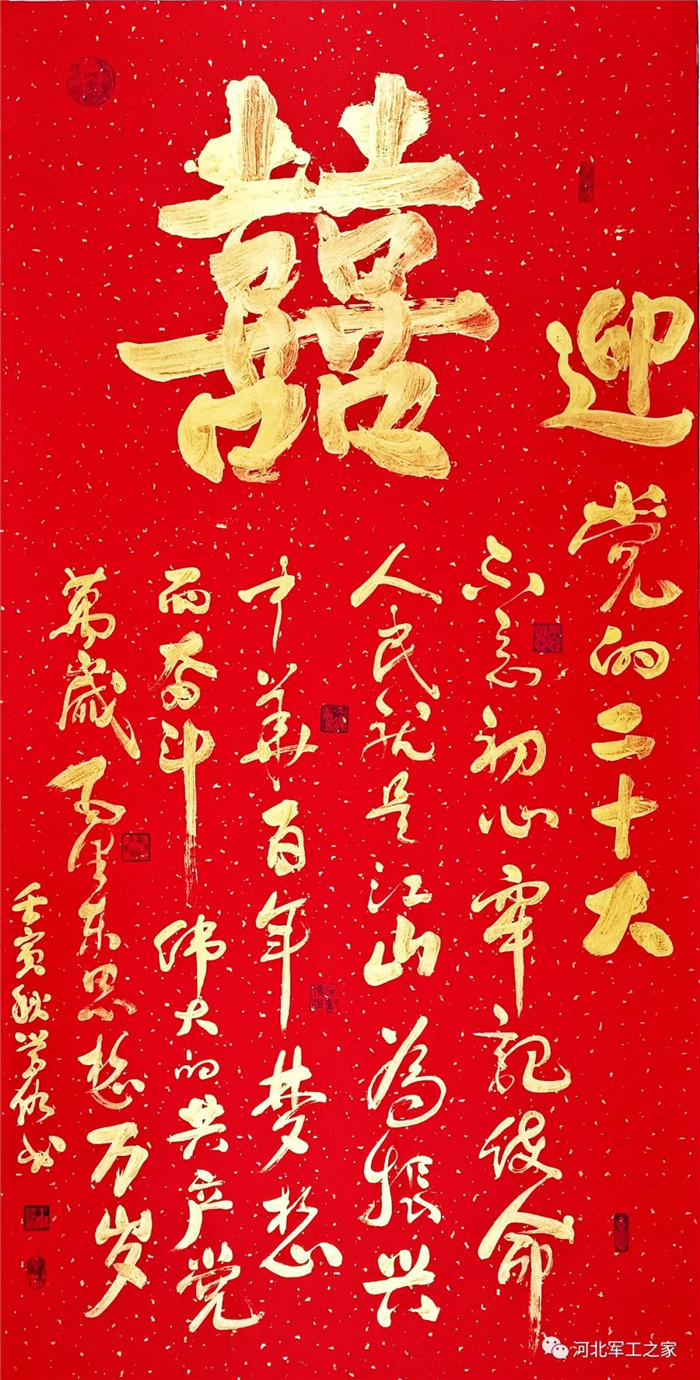 囍
迎党的二十大
不忘初心牢记使命
人民就是江山为振兴
中华百年梦想
而奋斗伟大的共产党
萬歲毛泽东思想万岁
壬寅秋
河北军工之家